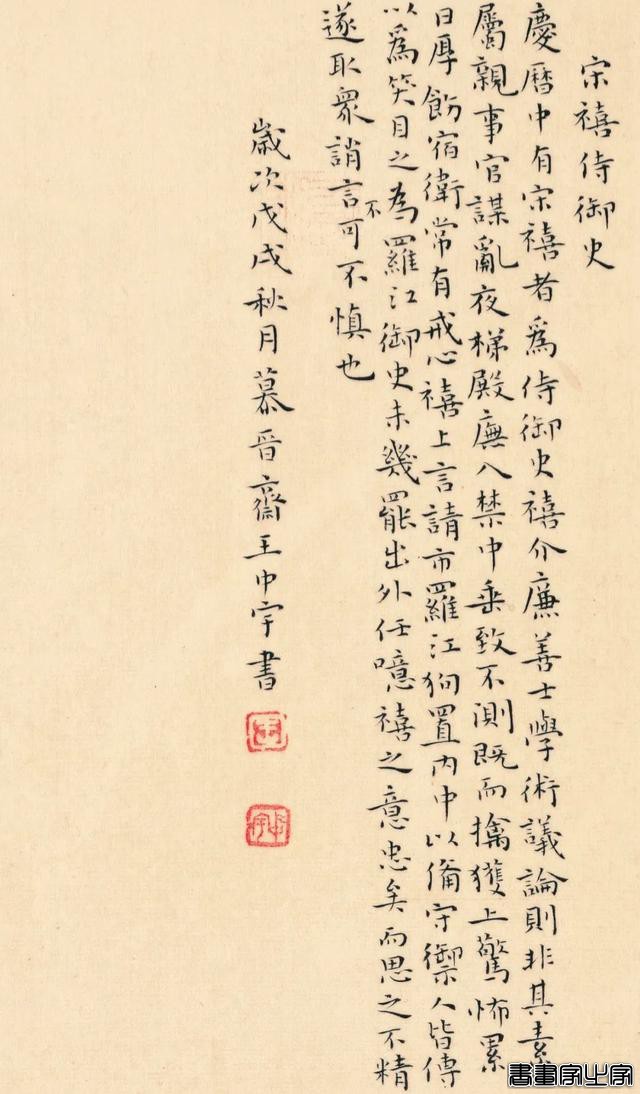 宋禧侍御史
慶曆中有宋禧者爲侍御史禧介廉善士學術議論則非其素
屬親事官謀亂夜梯殿廡入禁中垂致不測既而擒獲上驚怖累
日厚飭宿衛常有戒心禧上言請市羅江狗置内中以備守禦人皆傳
以爲笑目之爲羅江御史未幾罷出外任噫禧之意忠矣而思之不精
遂取衆誚言可不慎也
不
歲次戊戌秋月慕晋齋王中宇書
書畫家之家